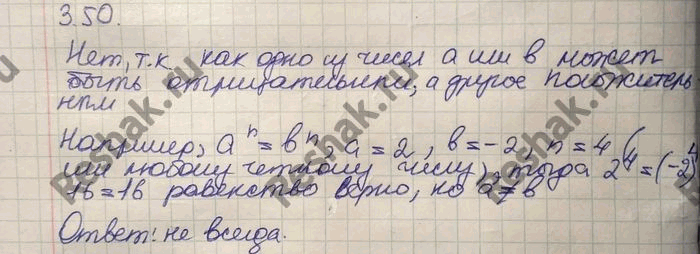 3.50.
Нет, т.к. как одно из чисел а или в может
быть отрицательным, а другое положитель
ным
Например, aⁿ = bⁿ, a = 2, в = -2, n = 4 (
или любому четному числу), тогда 2⁴ = (-2)⁴
16 = 16 равенство верно, но a ≠ в
Ответ: не всегда.